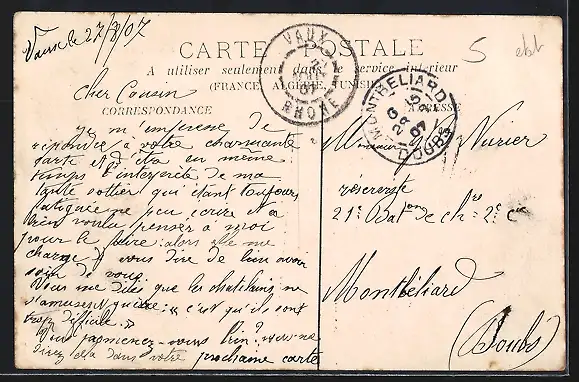 Vaux le 27/8/07
CARTE POSTALE
A utiliser seulement dans le service intérieur
(FRANCE, ALGÉRIE, TUNISIE)
VAUX
RHONE
MONTBÉLIARD
DOUBS
5
CORRESPONDANCE
ADRESSE
Cher Cousin
Je m'empresse de
répondre à votre charmante
carte et d'être en même
temps l'interprète de ma
tante votier qui étant toujours
fatiguée ne peu écrire et a
bien voulu penser à moi
pour le faire: alors elle me
charge de vous dire de bien avoir
soin de vous.
Vous me dites que les chatelains ne
s'amusent guère: « c'est qu'ils sont
trop difficile. »
Vous
dans votre prochaine carte
Monsieur Vurier
réserviste
21e Bat on de ch rs 2e Cie
Montbéliard
(Doubs)